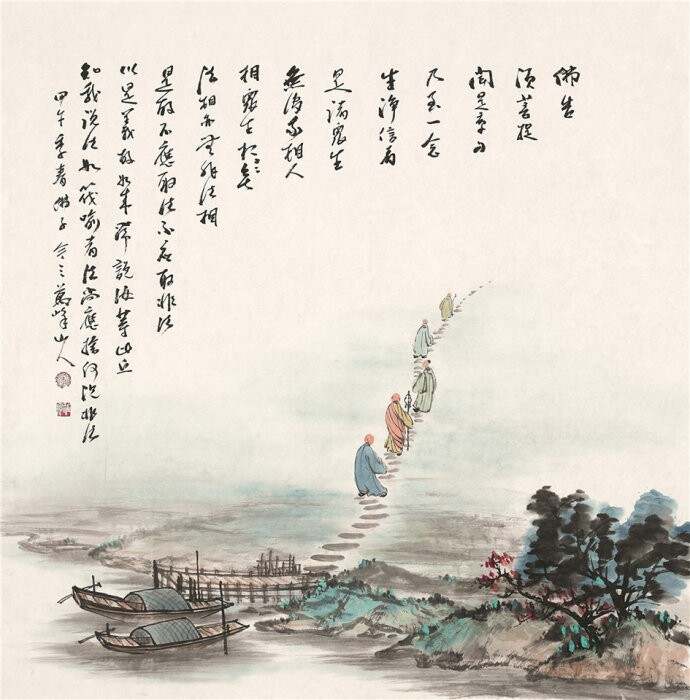 佛告
須菩提
聞是章句
乃至一念
生淨信者
是諸眾生
無復我相人
相眾生相無
法相亦無非法相
是故不應取法不應取非法
以是義故如來常說汝等比丘
知我說法如筏喻者法尚應捨何況非法
甲午季春 萬峰山人